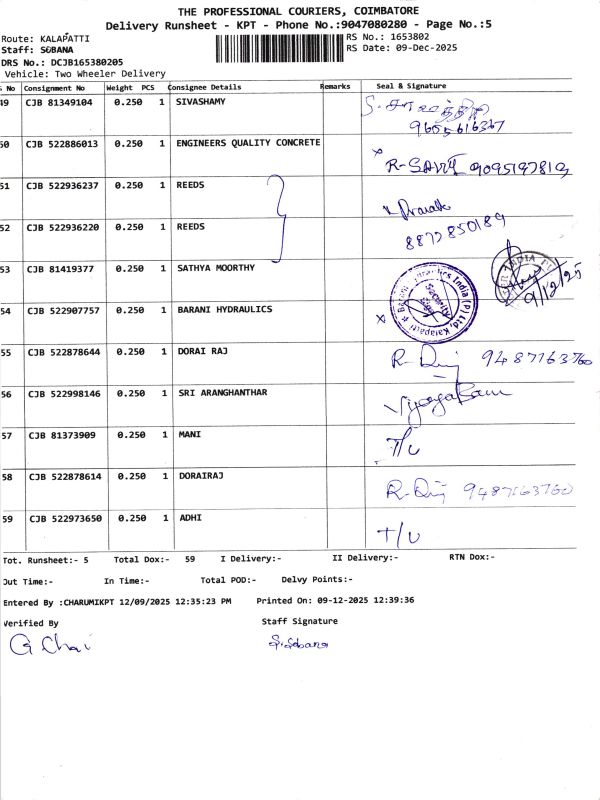 THE PROFESSIONAL COURIERS, COIMBATORE
Delivery Runsheet - KPT - Phone No.:9047080280 - Page No.:5
Route: KALAPATTI
RS No.: 1653802
Staff: SOBANA
RS Date: 09-Dec-2025
DRS No.: DCJB165380205
Vehicle: Two Wheeler Delivery
S No Consignment No Weight PCS Consignee Details Remarks Seal & Signature
49 CJB 81349104 0.250 1 SIVASHAMY
9655616367
50 CJB 522886013 0.250 1 ENGINEERS QUALITY CONCRETE
51 CJB 522936237 0.250 1 REEDS
52 CJB 522936220 0.250 1 REEDS 8872850189
53 CJB 81419377 0.250 1 SATHYA MOORTHY 9/12/25
54 CJB 522907757 0.250 1 BARANI HYDRAULICS x
Barani Hydraulics India (P) Ltd, Kalapatti
Security
55 CJB 522878644 0.250 1 DORAI RAJ 9487163760
56 CJB 522998146 0.250 1 SRI ARANGHANTHAR
57 CJB 81373909 0.250 1 MANI T/U
58 CJB 522878614 0.250 1 DORAIRAJ 9487163760
59 CJB 522973650 0.250 1 ADHI T/U
Tot. Runsheet:- 5 Total Dox:- 59 I Delivery:- II Delivery:- RTN Dox:-
Out Time:- In Time:- Total POD:- Delvy Points:-
Entered By :CHARUMIKPT 12/09/2025 12:35:23 PM Printed On: 09-12-2025 12:39:36
Verified By Staff Signature
G Chai S.Sobana